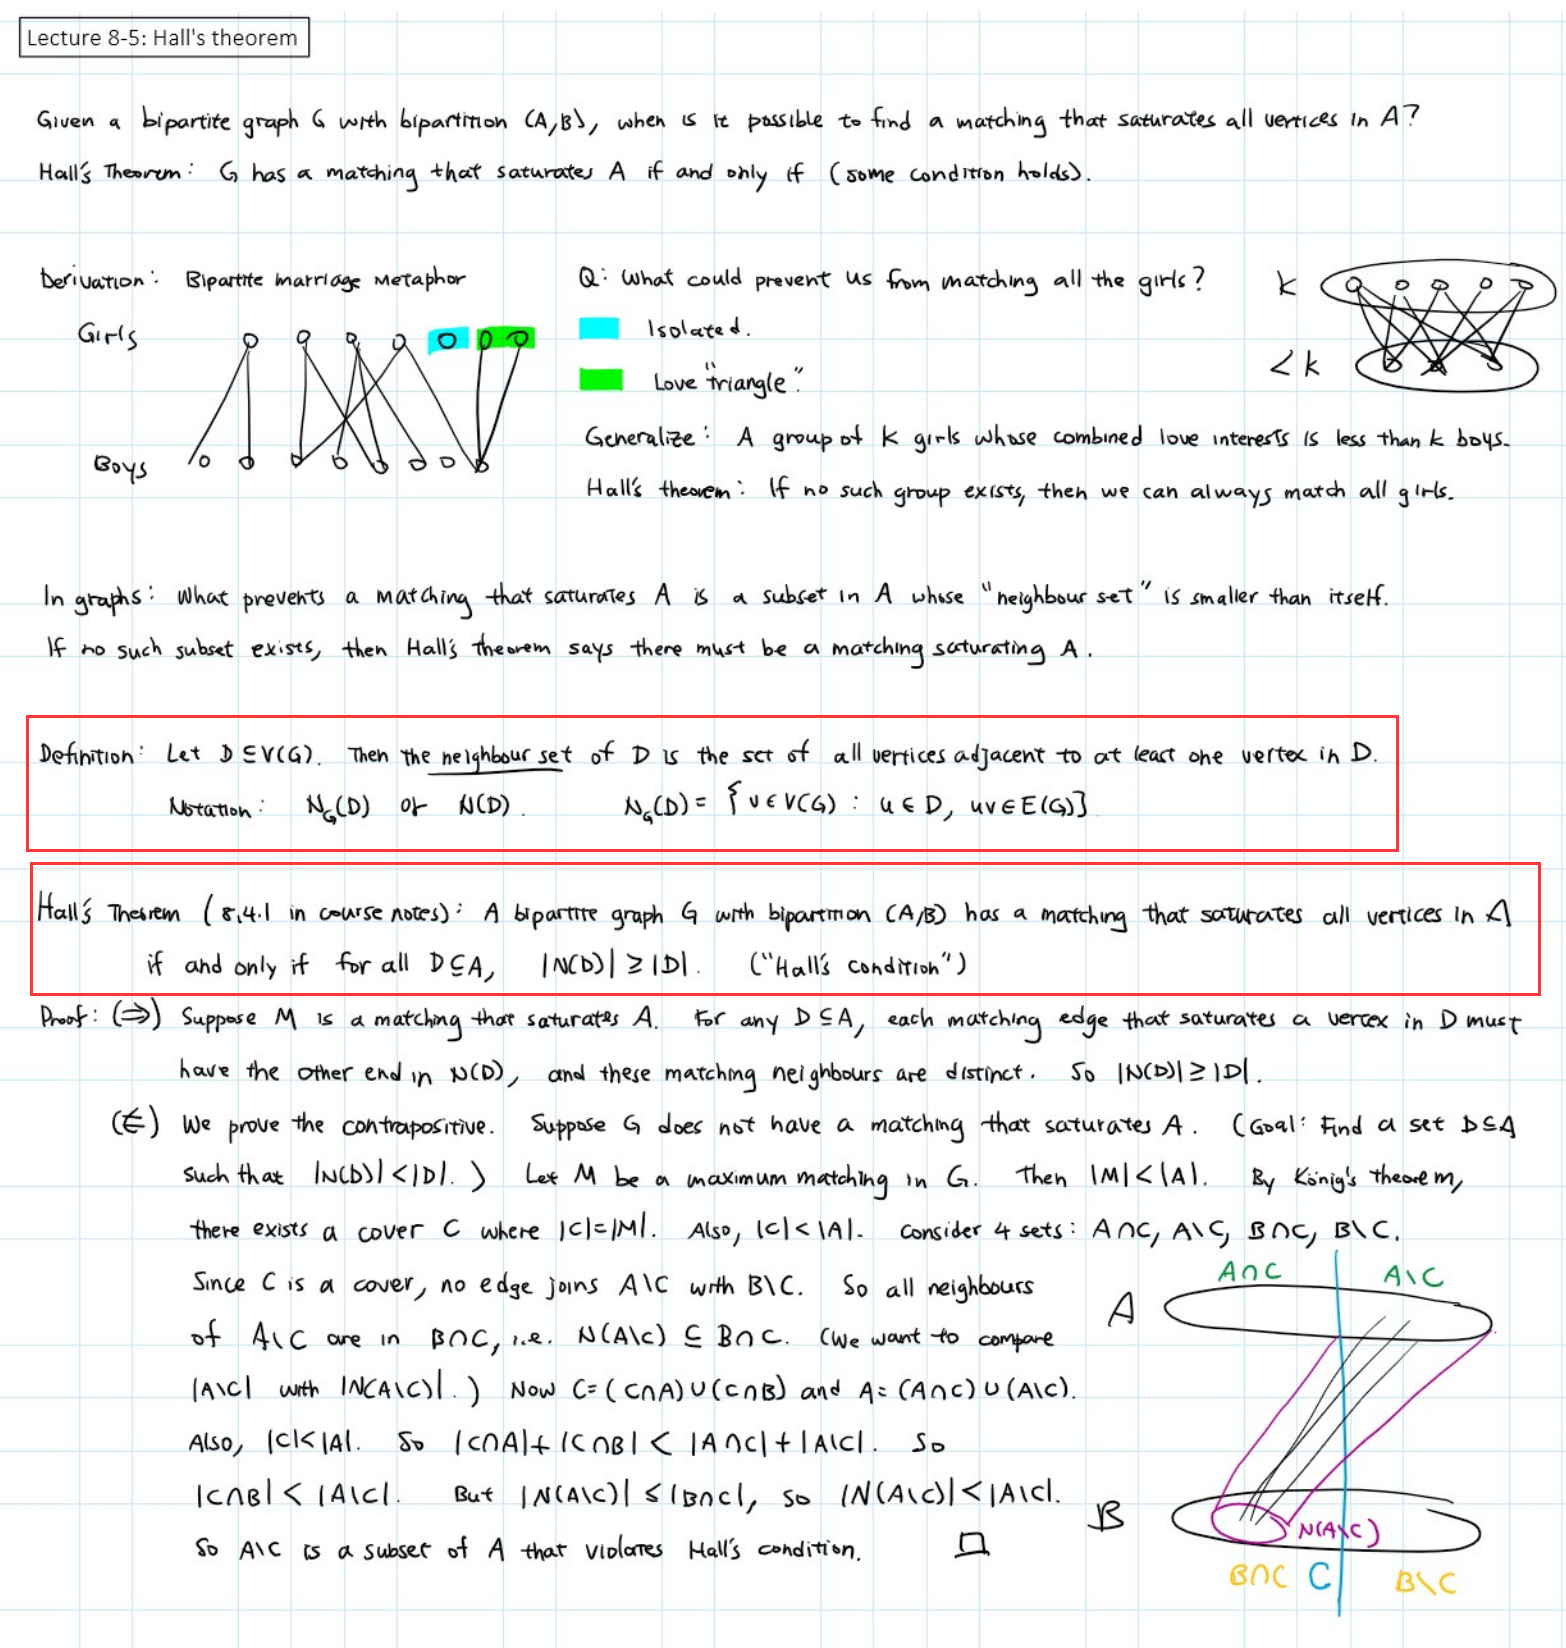 Lecture 8-5: Hall's theorem
Given a bipartite graph G with bipartition (A,B), when is it possible to find a matching that saturates all vertices in A?
Hall's Theorem: G has a matching that saturates A if and only if (some condition holds).
Derivation: Bipartite marriage metaphor
Q: What could prevent us from matching all the girls?
k
Girls
Isolated.
<k
Love "triangle".
Generalize: A group of k girls whose combined love interests is less than k boys.
Boys
Hall's theorem: If no such group exists, then we can always match all girls.
In graphs: What prevents a matching that saturates A is a subset in A whose "neighbour set" is smaller than itself.
If no such subset exists, then Hall's theorem says there must be a matching saturating A.
Definition: Let D⊆V(G). Then the neighbour set of D is the set of all vertices adjacent to at least one vertex in D.
Notation: N_G(D) or N(D). N_G(D) = {v∈V(G) : u∈D, uv∈E(G)}
Hall's Theorem (8.4.1 in course notes): A bipartite graph G with bipartition (A,B) has a matching that saturates all vertices in A
if and only if for all D⊆A, |N(D)| ≥ |D|. ("Hall's condition")
Proof: (⇒) Suppose M is a matching that saturates A. For any D⊆A, each matching edge that saturates a vertex in D must
have the other end in N(D), and these matching neighbours are distinct. So |N(D)| ≥ |D|.
(⇐) We prove the contrapositive. Suppose G does not have a matching that saturates A. (Goal: Find a set D⊆A
such that |N(D)| < |D|.) Let M be a maximum matching in G. Then |M| < |A|. By König's theorem,
there exists a cover C where |C| = |M|. Also, |C| < |A|. Consider 4 sets: A∩C, A\C, B∩C, B\C.
Since C is a cover, no edge joins A\C with B\C. So all neighbours
of A\C are in B∩C, i.e. N(A\C) ⊆ B∩C. (We want to compare
|A\C| with |N(A\C)|.) Now C = (C∩A)∪(C∩B) and A = (A∩C)∪(A\C).
Also, |C|<|A|. So |C∩A|+|C∩B| < |A∩C|+|A\C|. So
|C∩B| < |A\C|. But |N(A\C)| ≤ |B∩C|, so |N(A\C)| < |A\C|.
So A\C is a subset of A that violates Hall's condition. □
A∩C A\C
A
B
N(A\C)
B∩C C B\C